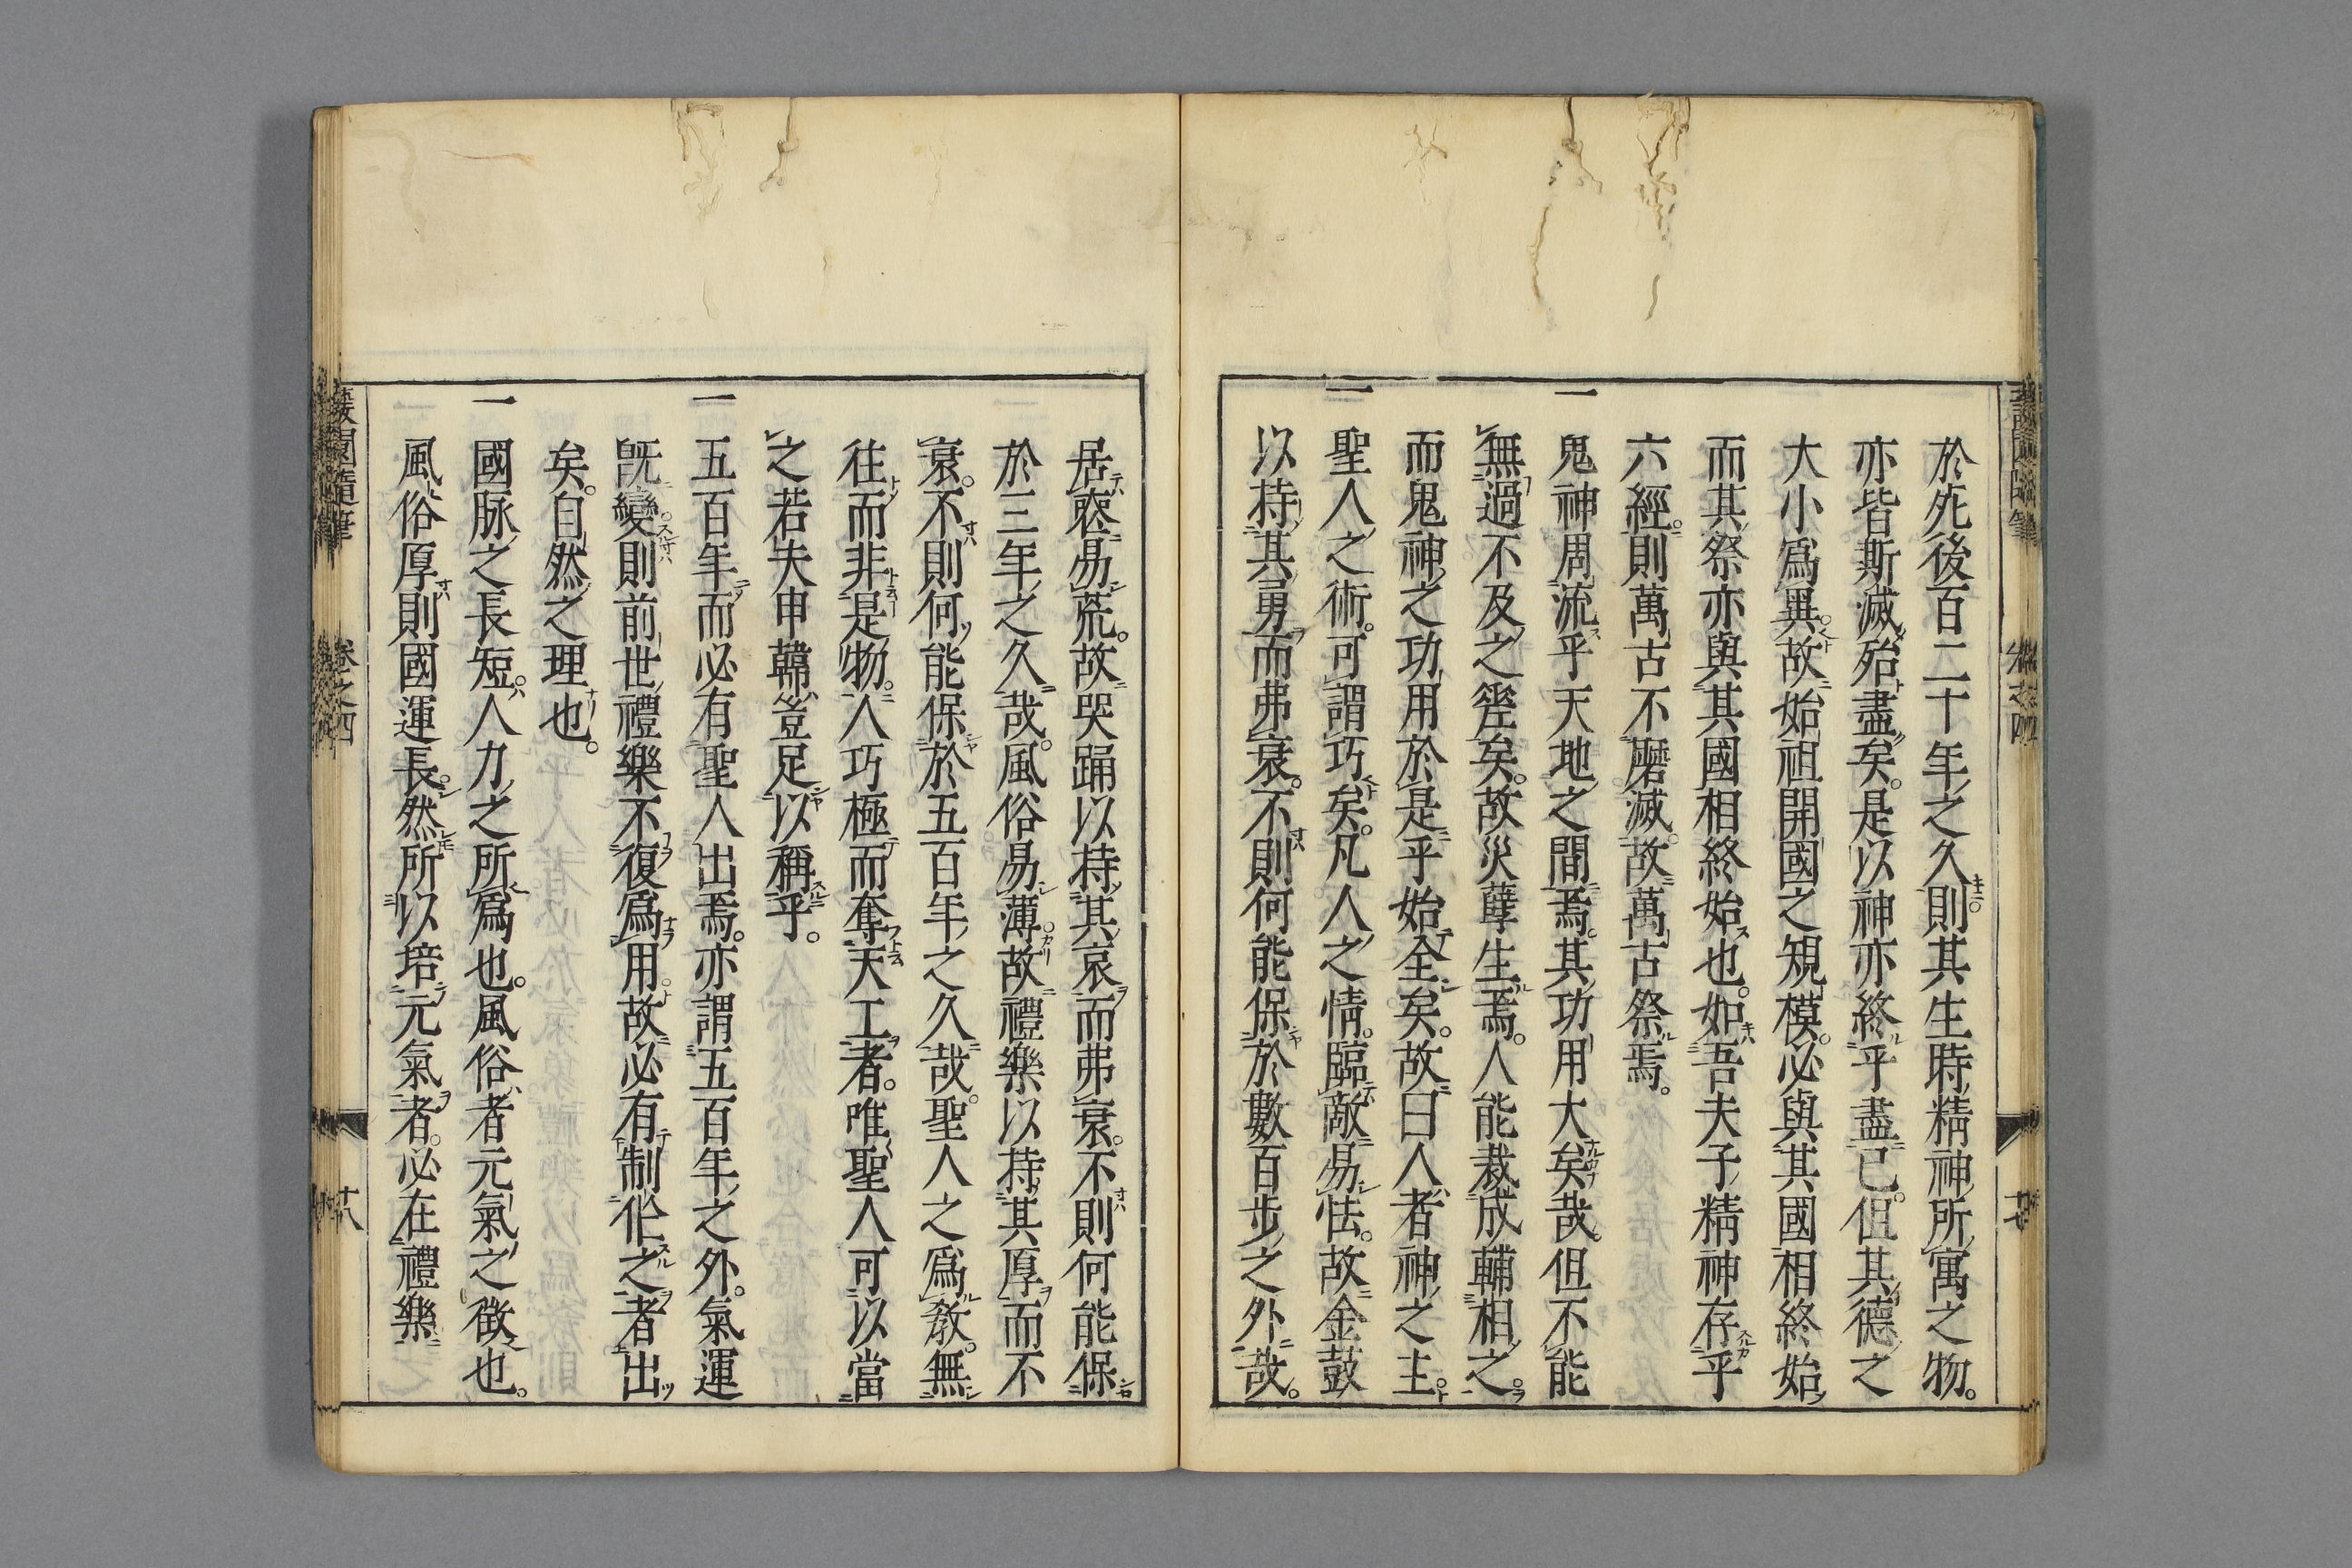 於死後百二十年之久則其生時精神所寓之物。
亦皆斯滅殆盡矣。是以神亦終乎盡已。但其德之
大小爲異。故始祖開國之規模。必與其國相終始
而其祭亦與其國相終始也。如吾夫子精神存乎
六經。則萬古不磨滅。故萬古祭焉。
一鬼神周流乎天地之間焉。其功用大矣哉。但不能
無過不及之蹙矣。故災孽生焉。人能裁成輔相之。
而鬼神之功用於是乎始全矣。故曰人者神之主。
一聖人之術。可謂巧矣。凡人之情。臨敵易怯。故金鼓
以持其勇而弗衰。不則何能保於數百步之外哉。
居喪易荒。故哭踊以持其哀而弗衰。不則何能保
於三年之久哉。風俗易薄。故禮樂以持其厚而不
衰。不則何能保於五百年之久哉。聖人之爲教。無
往而非是物。人巧極而奪天工者。唯聖人可以當
之若夫申韓豈足以稱乎。
一五百年而必有聖人出焉。亦謂五百年之外。氣運
旣變則前世禮樂不復爲用。故必有制作之者出
矣。自然之理也。
一國脉之長短。人力之所爲也。風俗者元氣之徵也。
風俗厚則國運長。然所以培元氣者。必在禮樂
蘐園隨筆 卷之四 十八